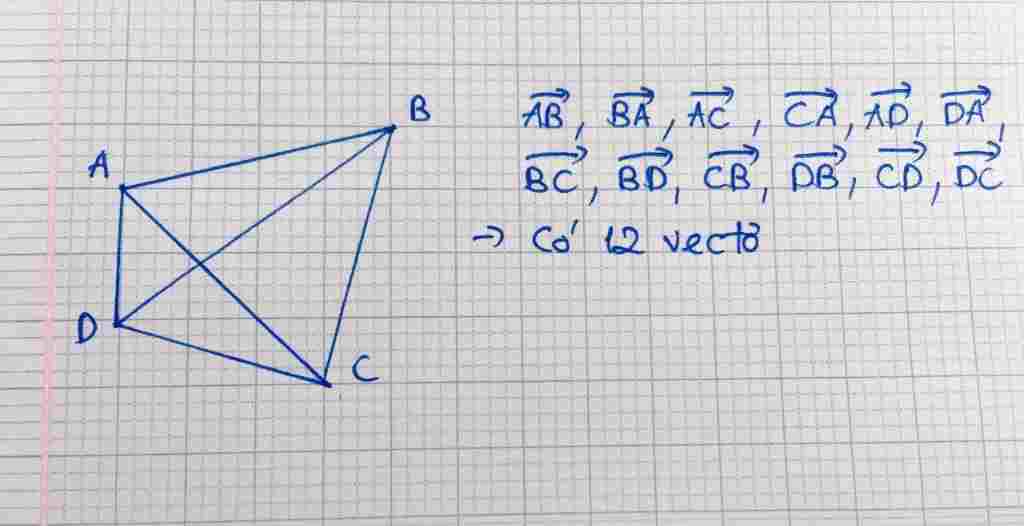 B
A
D
C
$\overrightarrow{AB}$, $\overrightarrow{BA}$, $\overrightarrow{AC}$, $\overrightarrow{CA}$, $\overrightarrow{AD}$, $\overrightarrow{DA}$,
$\overrightarrow{BC}$, $\overrightarrow{BD}$, $\overrightarrow{CB}$, $\overrightarrow{DB}$, $\overrightarrow{CD}$, $\overrightarrow{DC}$
→ Có 12 vectơ